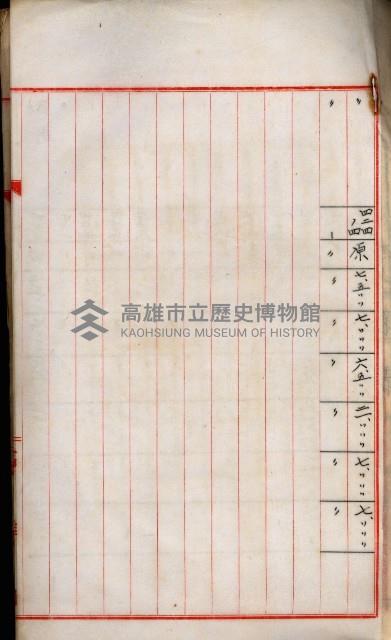 〃
四二四
ノ四
原
七、五〃〃
七、〃〃〃
六五〃〃
三、〃〃〃
七、〃〃〃
七、〃〃〃
〃
〃
〃
〃
〃
〃
〃
高雄市立歷史博物館
KAOHSIUNG MUSEUM OF HISTORY